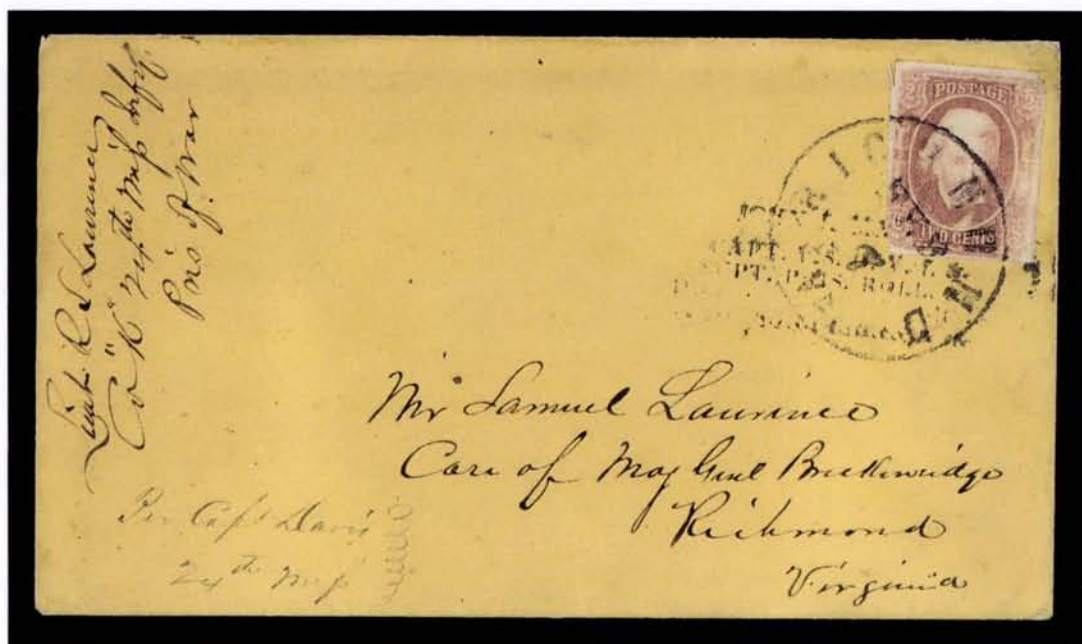 Lieut R L Laurence
Co "K" Miss
Pris of War
POSTAGE
TWO CENTS
RICHMOND VA
CAPT.
ROLL.
Mr Samuel Laurence
Care of Maj Genl Breckenridge
Richmond
Virginia
Per Capt Davis
24th Miss